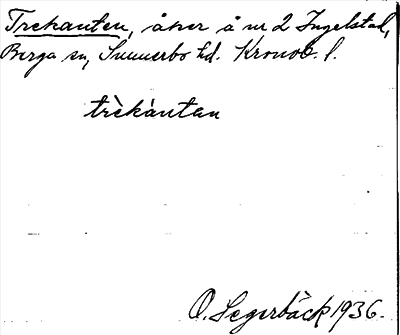 Trekanten, åker å nr 2 Ingelstad,
Berga sn, Sunnerbo hd. Kronob. l.
trèkànten
O. Segerbäck 1936.